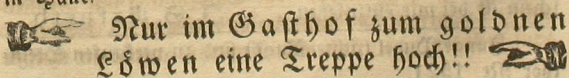 Nur im Gasthof zum goldnen
Löwen eine Treppe hoch!!